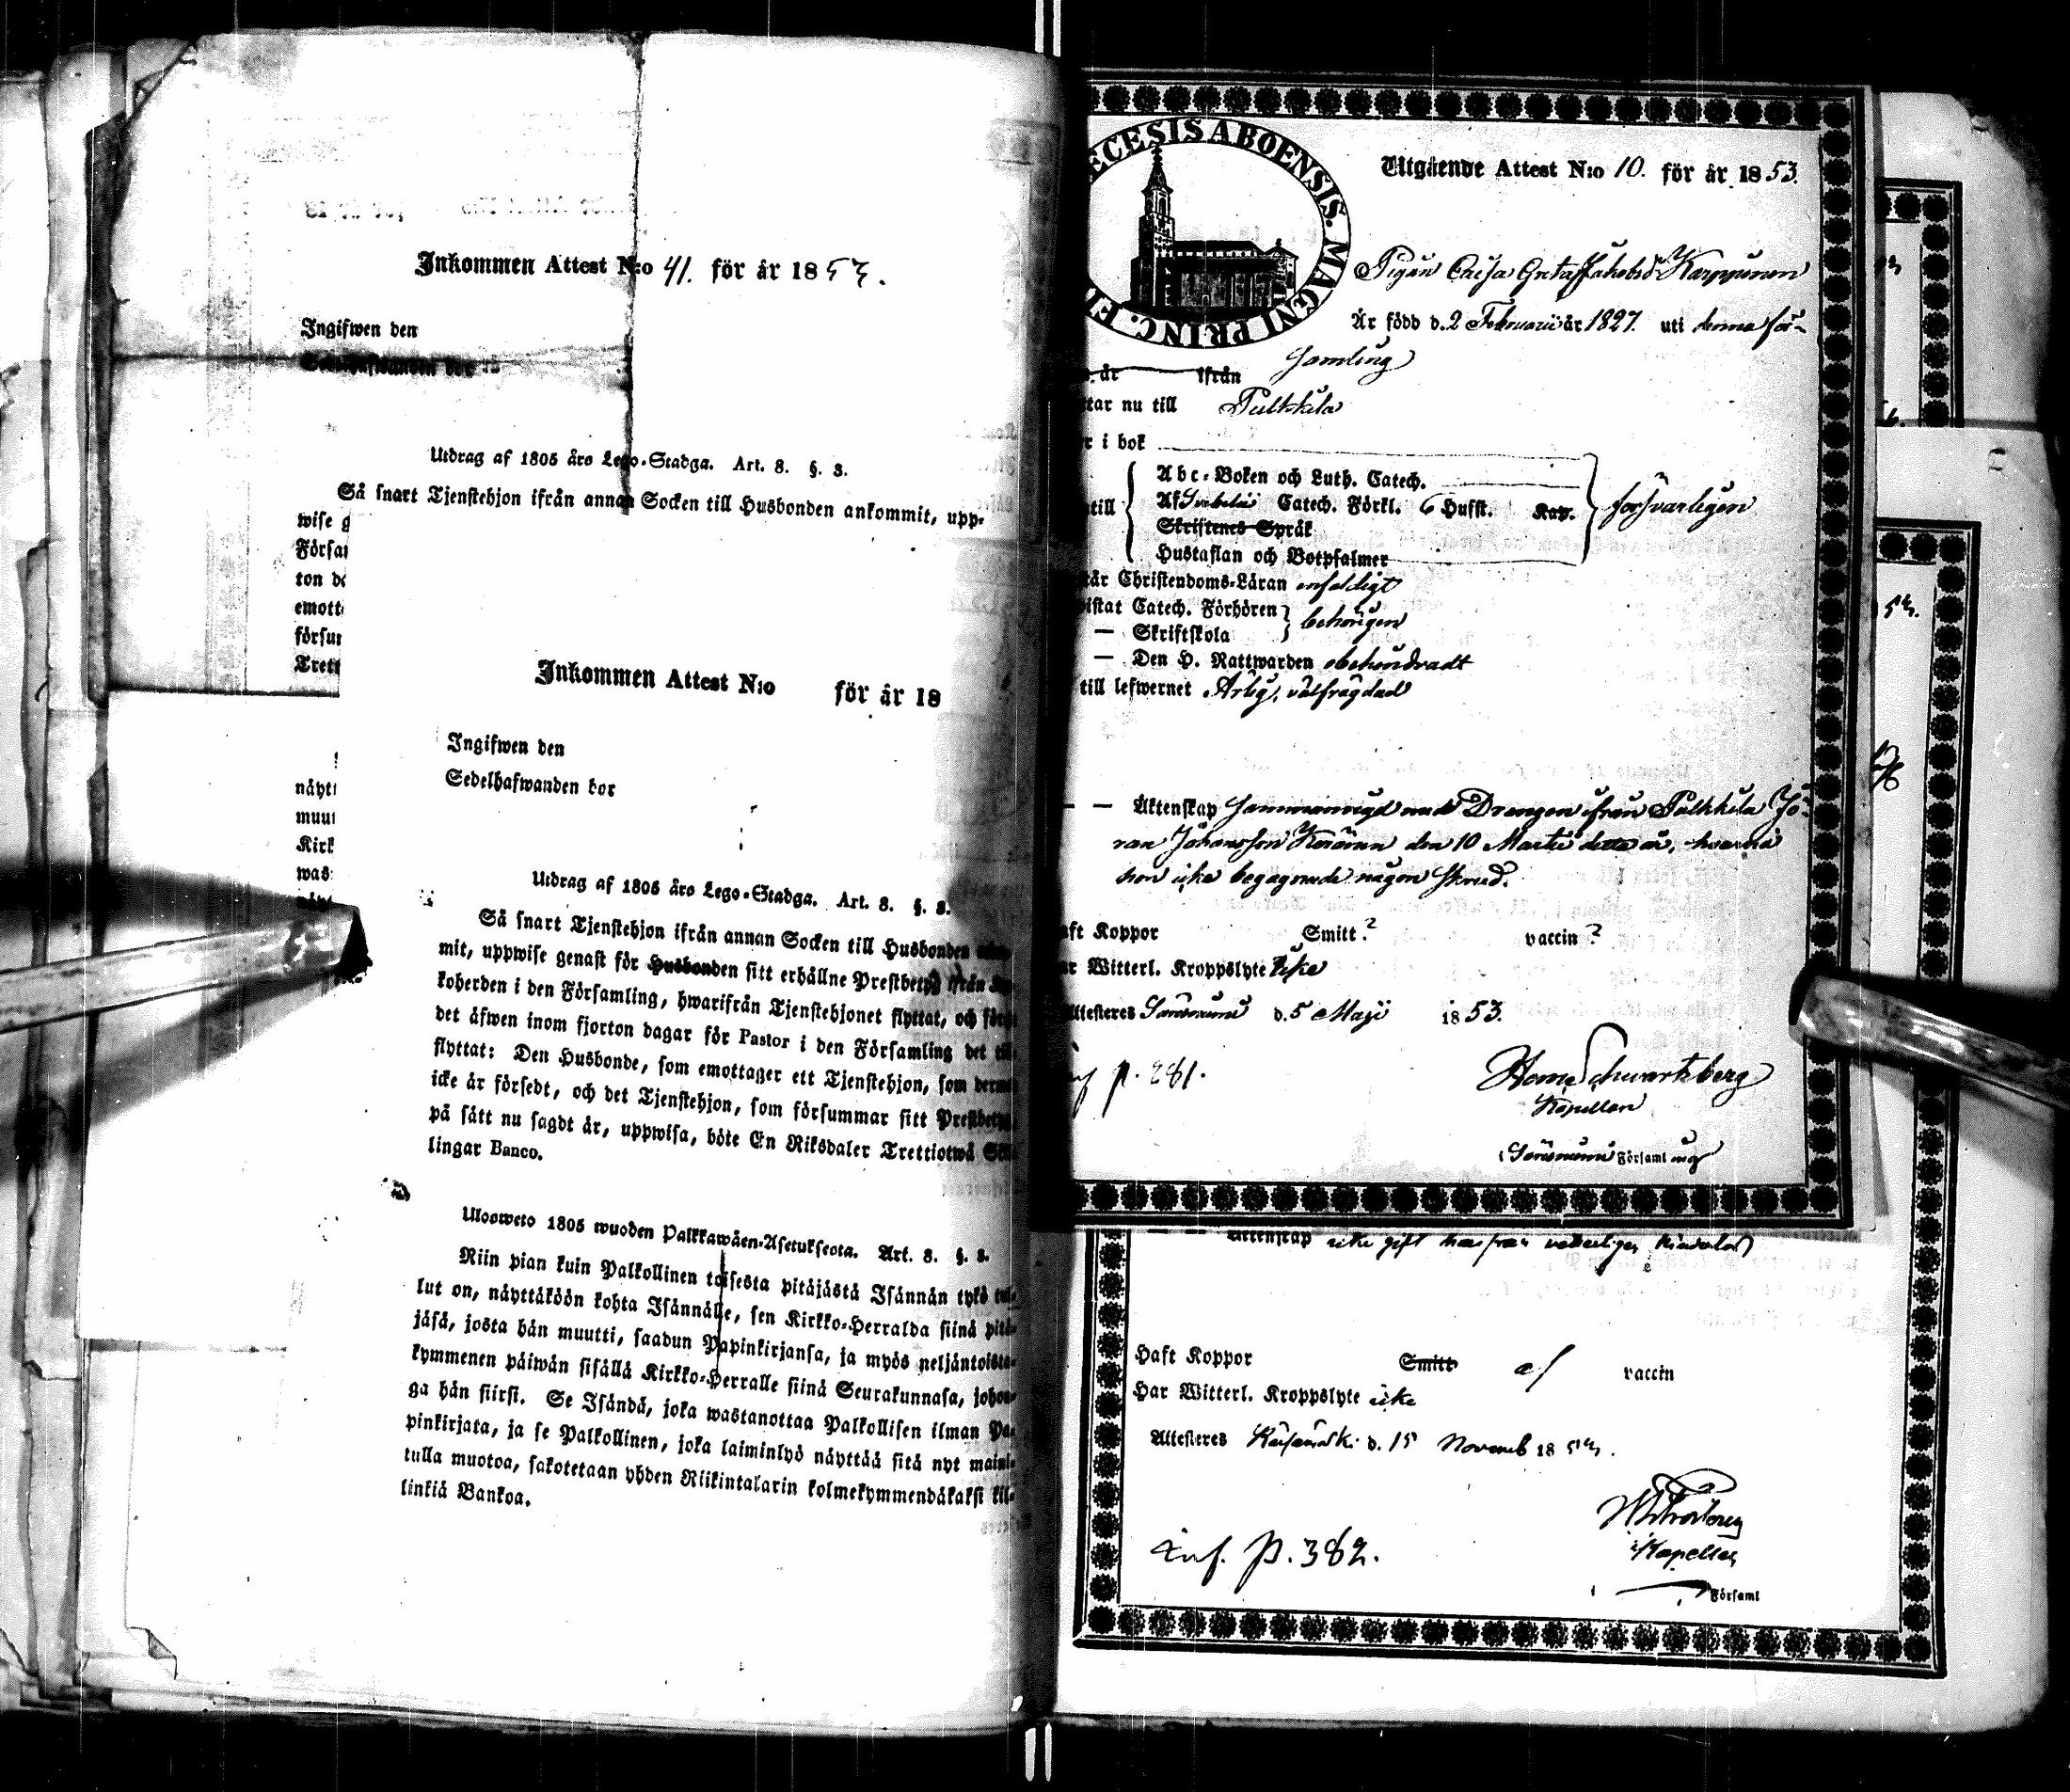 Inkommen Attest N:o 41. för år 1853.
Ingifwen den
Utdrag af 1805 års Lego-Stadga. Art. 8. §. 3.
Så snart Tjenstehjon ifrån annan Socken till Husbonden ankommit, upp-
wise
Försa
ton d
emott
försu
Trett
Inkommen Attest N:o för år 18
Ingifwen den
Sedelhafwanden bor
näyt
muu
Kirk
was
Utdrag af 1805 års Lego-Stadga. Art. 8. §. 3.
Så snart Tjenstehjon ifrån annan Socken till Husbonden
mit, uppwise genast för Husbonden sitt erhållne Prestbetyg ifrån
koherden i den Församling, hwarifrån Tjenstehjonet flyttat, och
det äfwen inom fjorton dagar för Pastor i den Församling det
flyttat: Den Husbonde, som emottager ett Tjenstehjon, som
icke är försedt, och det Tjenstehjon, som försummar sitt
på sätt nu sagdt är, uppwisa, böte En Riksdaler Trettiotwå
lingar Banco.
Ulosweto 1805 wuoden Palkkawäen-Asetuksesta. Art. 8. §. 3.
Niin pian kuin Palkollinen toisesta pitäjästä Isännän tykö tul-
lut on, näyttäköön kohta Isännälle, sen Kirkko-Herralda siinä pitä-
jäsä, josta hän muutti, saadun Papinkirjansa, ja myös neljäntoista-
kymmenen päiwän sisällä Kirkko-Herralle siinä Seurakunnasa, johon-
ga hän siirsi. Se Isändä, joka wastanottaa Palkollisen ilman Pa-
pinkirjata, ja se Palkollinen, joka laiminlyö näyttää sitä nyt maini-
tulla muotoa, sakotetaan yhden Riikintalarin kolmekymmendäkaksi kil-
linkiä Bankoa.
ECESIS ABOENSIS. MAGNI PRINC. F
Utgående Attest N:o 10. för år 1853.
Pigan Caisa Gusta Jakobsd. Karppinen
Är född d. 2 Februarii år 1827. uti denna för-
samling
år ifrån
tar nu till Pulkkila
r i bok
till Abc-Boken och Luth. Catech.
Af Svebelii Catech. Förkl. 6 Hufst. Kap. försvarligen
Skriftenes Språk
Hustaflan och Botpsalmer
tår Christendoms-Läran enfaldigt
istat Catech. Förhören behörigen
— Skriftskola
— Den H. Nattwarden obehindradt
till lefwernet Ärlig, välfrägdad
— — Äktenskap sammanvigd med Drengen ifrån Pulkkila Jö-
ran Johansson Keränen den 10 Martii detta år, hvarvid
hon icke begagnade någon skrud.
aft Koppor Smitt.? vaccin ?
ar Witterl. Kroppslyte icke
Attesteras Säräisniemi d. 5 Maji 1853.
p. 281.
Schwartzberg
Kapellan
i Säräisniemi Församling
Äktenskap icke gift
Haft Koppor Smitt af vaccin
Har Witterl. Kroppslyte icke
Attesteras d. 15 Novemb 1853.
Inf. p. 382.
Kapellan
i Församl